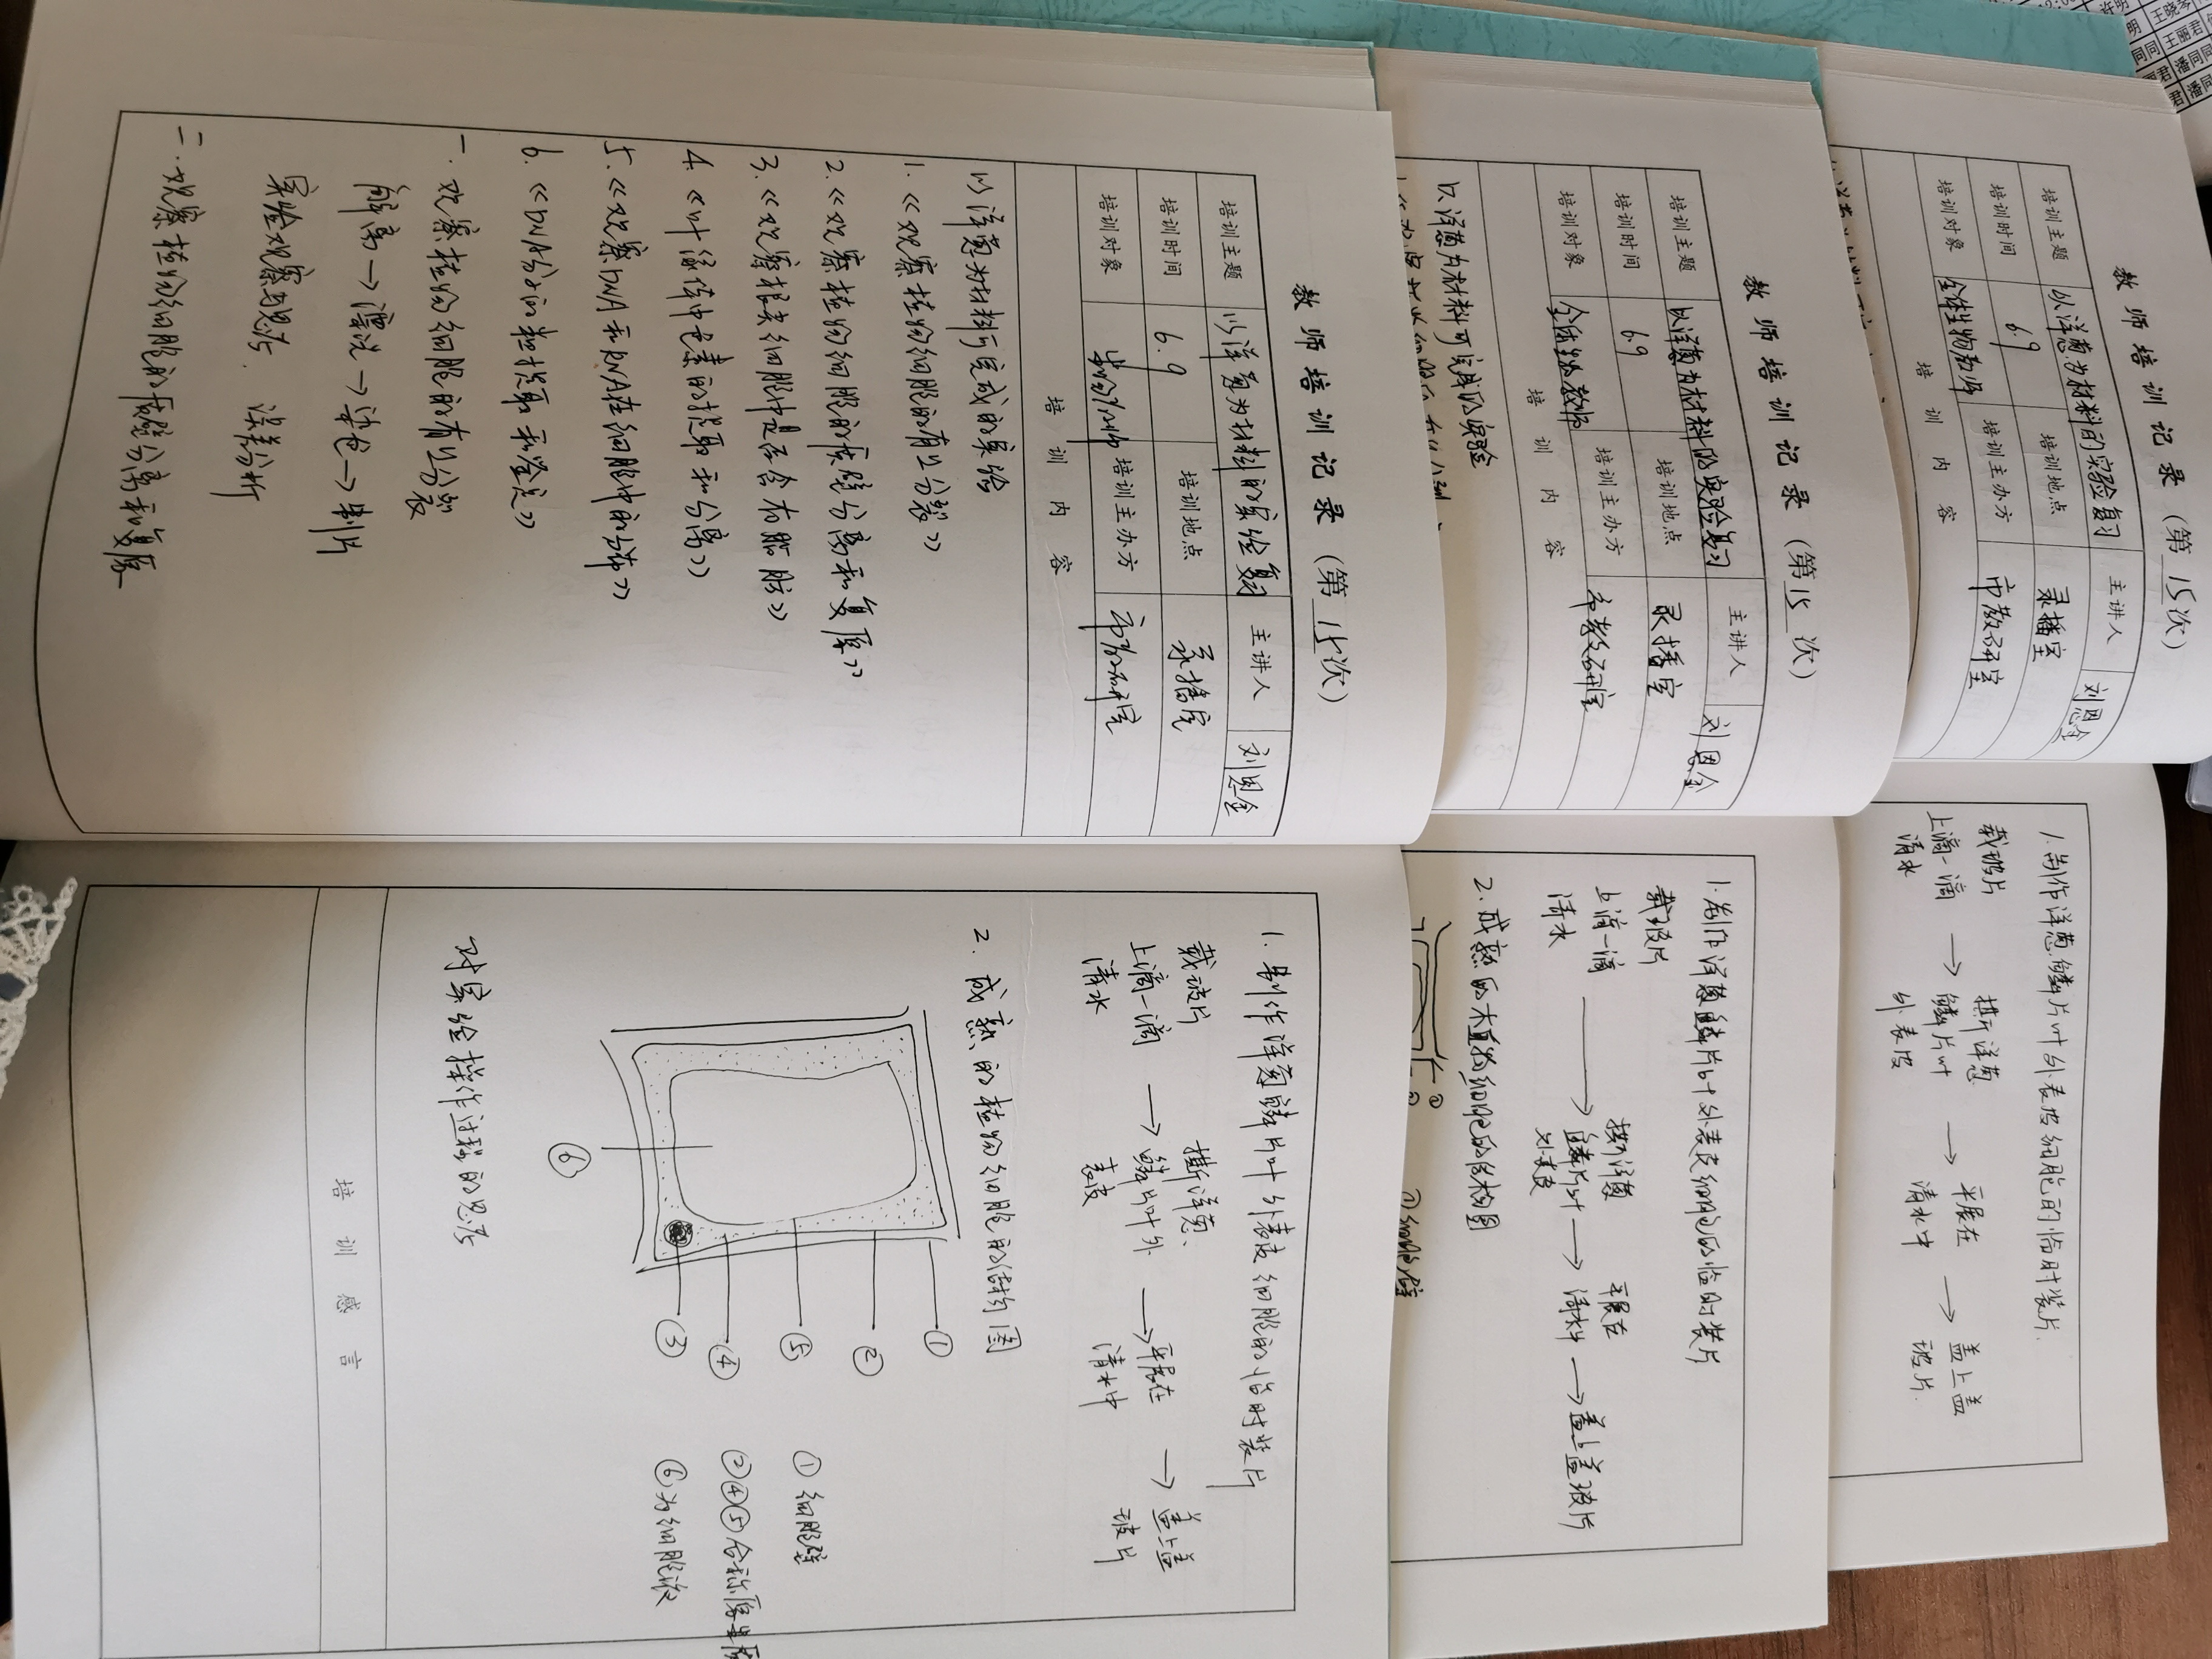 教师培训记录（第 15 次）
培训主题 以洋葱为材料的实验复习 主讲人 刘恩金
培训时间 6.9 培训地点 录播室
培训对象 全体生物教师 培训主办方 市教研室
培训内容
1.制作洋葱鳞片叶外表皮细胞的临时装片.
载玻片 上滴一滴 清水 → 撕洋葱 鳞片叶 外表皮 → 平展在 清水中 → 盖上盖 玻片.
教师培训记录（第 15 次）
培训主题 以洋葱为材料的实验复习 主讲人 刘恩金
培训时间 6.9 培训地点 录播室
培训对象 全体生物教师 培训主办方 市教研室
培训内容
以洋葱为材料可完成的实验
1.制作洋葱鳞片叶外表皮细胞的临时装片
载玻片 上滴一滴 清水 → 撕洋葱 鳞片叶 外表皮 → 平展在 清水中 → 盖上盖玻片
2.成熟的植物细胞的结构图
①
②
①细胞壁
教师培训记录（第 15 次）
培训主题 以洋葱为材料的实验复习 主讲人 刘恩金
培训时间 6.9 培训地点 录播室
培训对象 生物教师 培训主办方 市教研室
培训内容
以洋葱为材料可完成的实验
1.《观察植物细胞的有丝分裂》
2.《观察植物细胞的质壁分离和复原》
3.《观察根尖细胞中是否含有脂肪》
4.《叶绿体中色素的提取和分离》
5.《观察DNA和RNA在细胞中的分布》
6.《DNA分子的粗提取和鉴定》
一.观察植物细胞的有丝分裂
解离→漂洗→染色→制片
实验观察与思考. 误差分析
二.观察植物细胞的质壁分离和复原
1.制作洋葱鳞片叶外表皮细胞的临时装片
载玻片 上滴一滴 清水 → 撕洋葱、 鳞片叶外 表皮 → 平展在 清水中 → 盖上盖 玻片
2.成熟的植物细胞的结构图
①
②
⑤ ①细胞壁
④ ②④⑤合称原生质
③ ⑥为细胞液
⑥
对实验操作过程的思考
培训感言